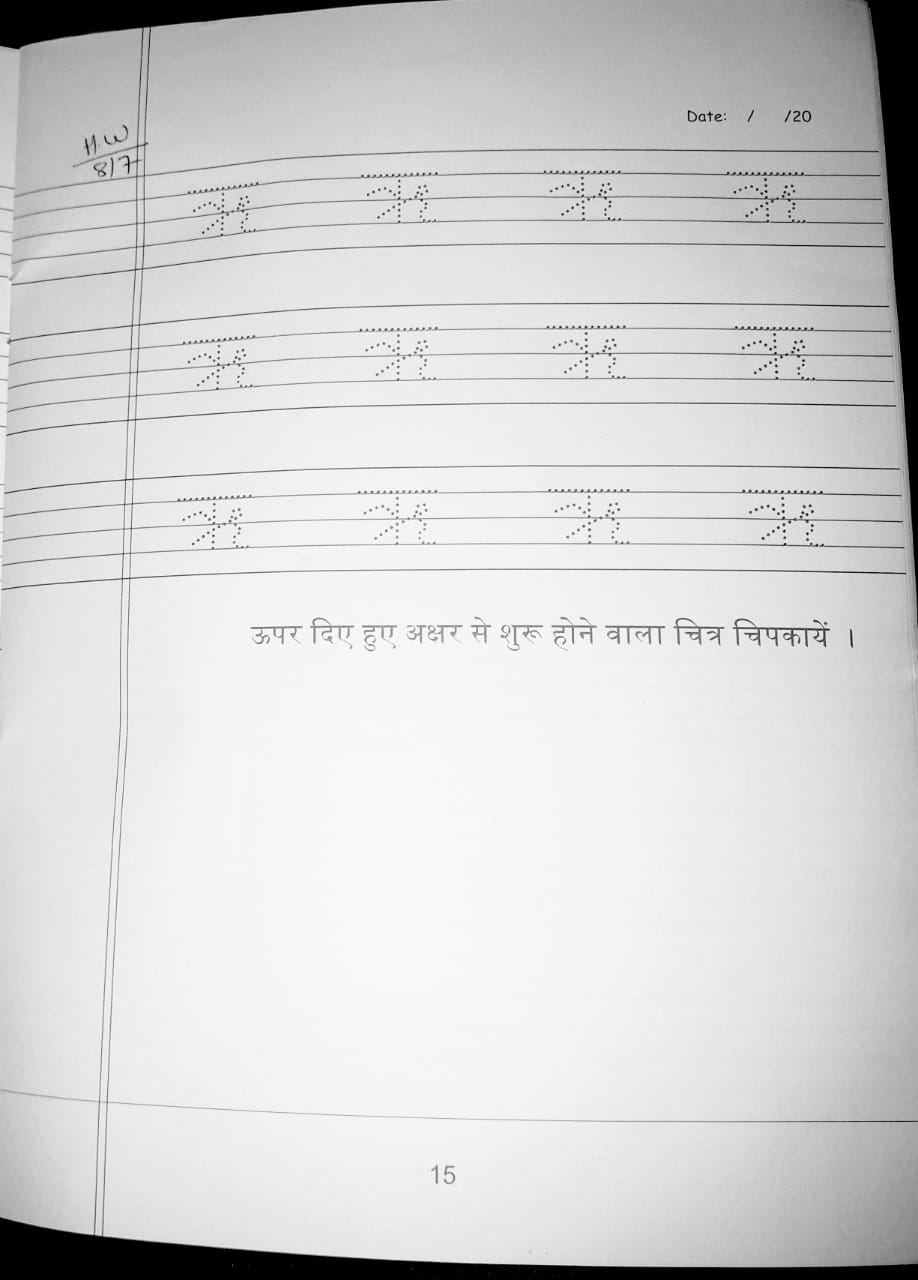 Date: / /20
H.W
8/7
ऋ ऋ ऋ ऋ
ऋ ऋ ऋ ऋ
ऋ ऋ ऋ ऋ
ऊपर दिए हुए अक्षर से शुरू होने वाला चित्र चिपकायें ।
15